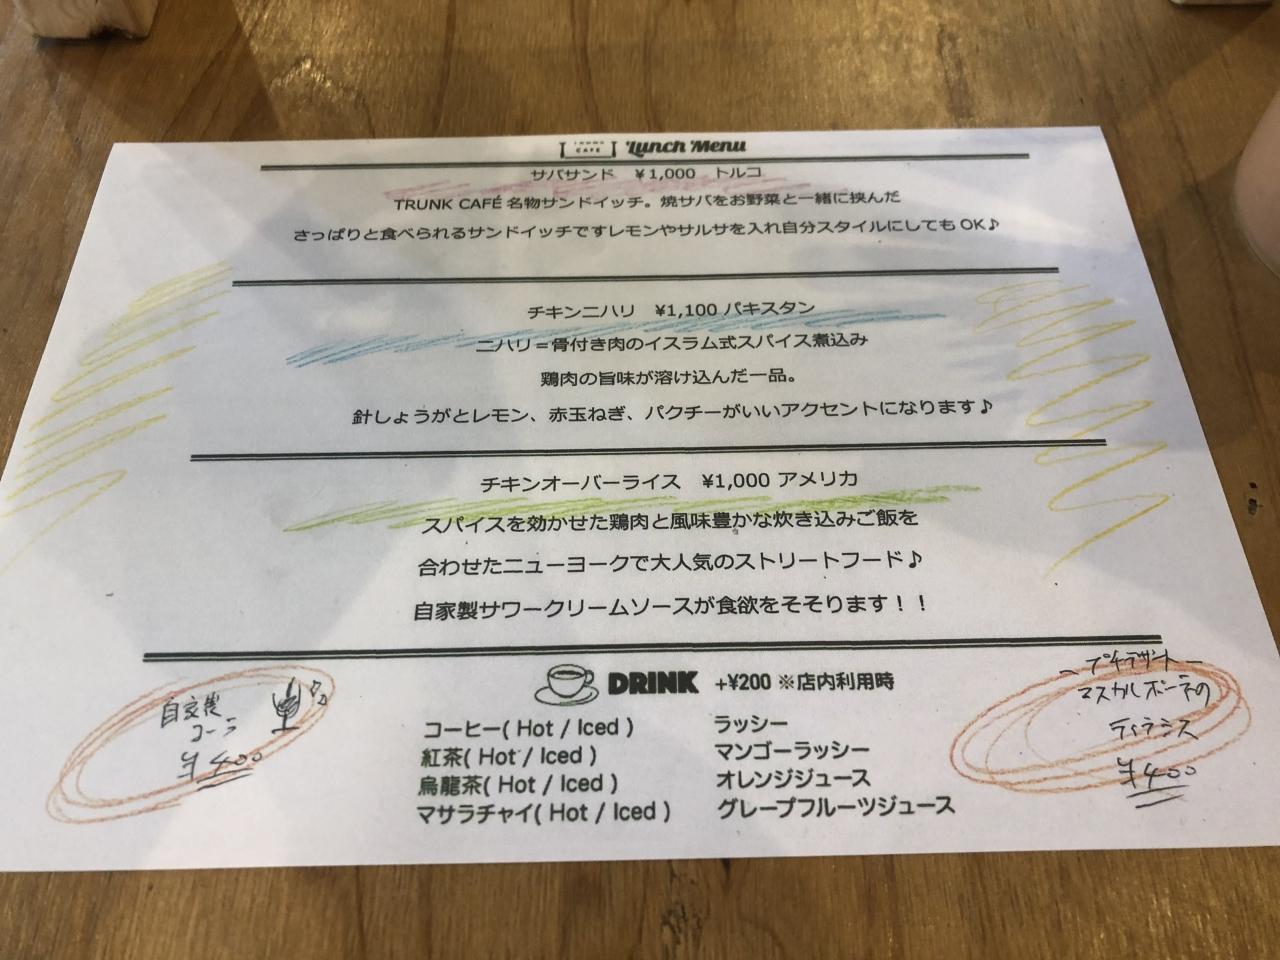 TRUNK CAFE Lunch Menu
サバサンド ¥1,000 トルコ
TRUNK CAFÉ 名物サンドイッチ。焼サバをお野菜と一緒に挟んだ
さっぱりと食べられるサンドイッチですレモンやサルサを入れ自分スタイルにしてもOK♪
チキンニハリ ¥1,100 パキスタン
ニハリ＝骨付き肉のイスラム式スパイス煮込み
鶏肉の旨味が溶け込んだ一品。
針しょうがとレモン、赤玉ねぎ、パクチーがいいアクセントになります♪
チキンオーバーライス ¥1,000 アメリカ
スパイスを効かせた鶏肉と風味豊かな炊き込みご飯を
合わせたニューヨークで大人気のストリートフード♪
自家製サワークリームソースが食欲をそそります！！
DRINK +¥200 ※店内利用時
コーヒー( Hot / Iced )
紅茶( Hot / Iced )
烏龍茶( Hot / Iced )
マサラチャイ( Hot / Iced )
ラッシー
マンゴーラッシー
オレンジジュース
グレープフルーツジュース
自家製
コーラ
¥400
プチデザート
マスカルポーネの
ティラミス
¥400